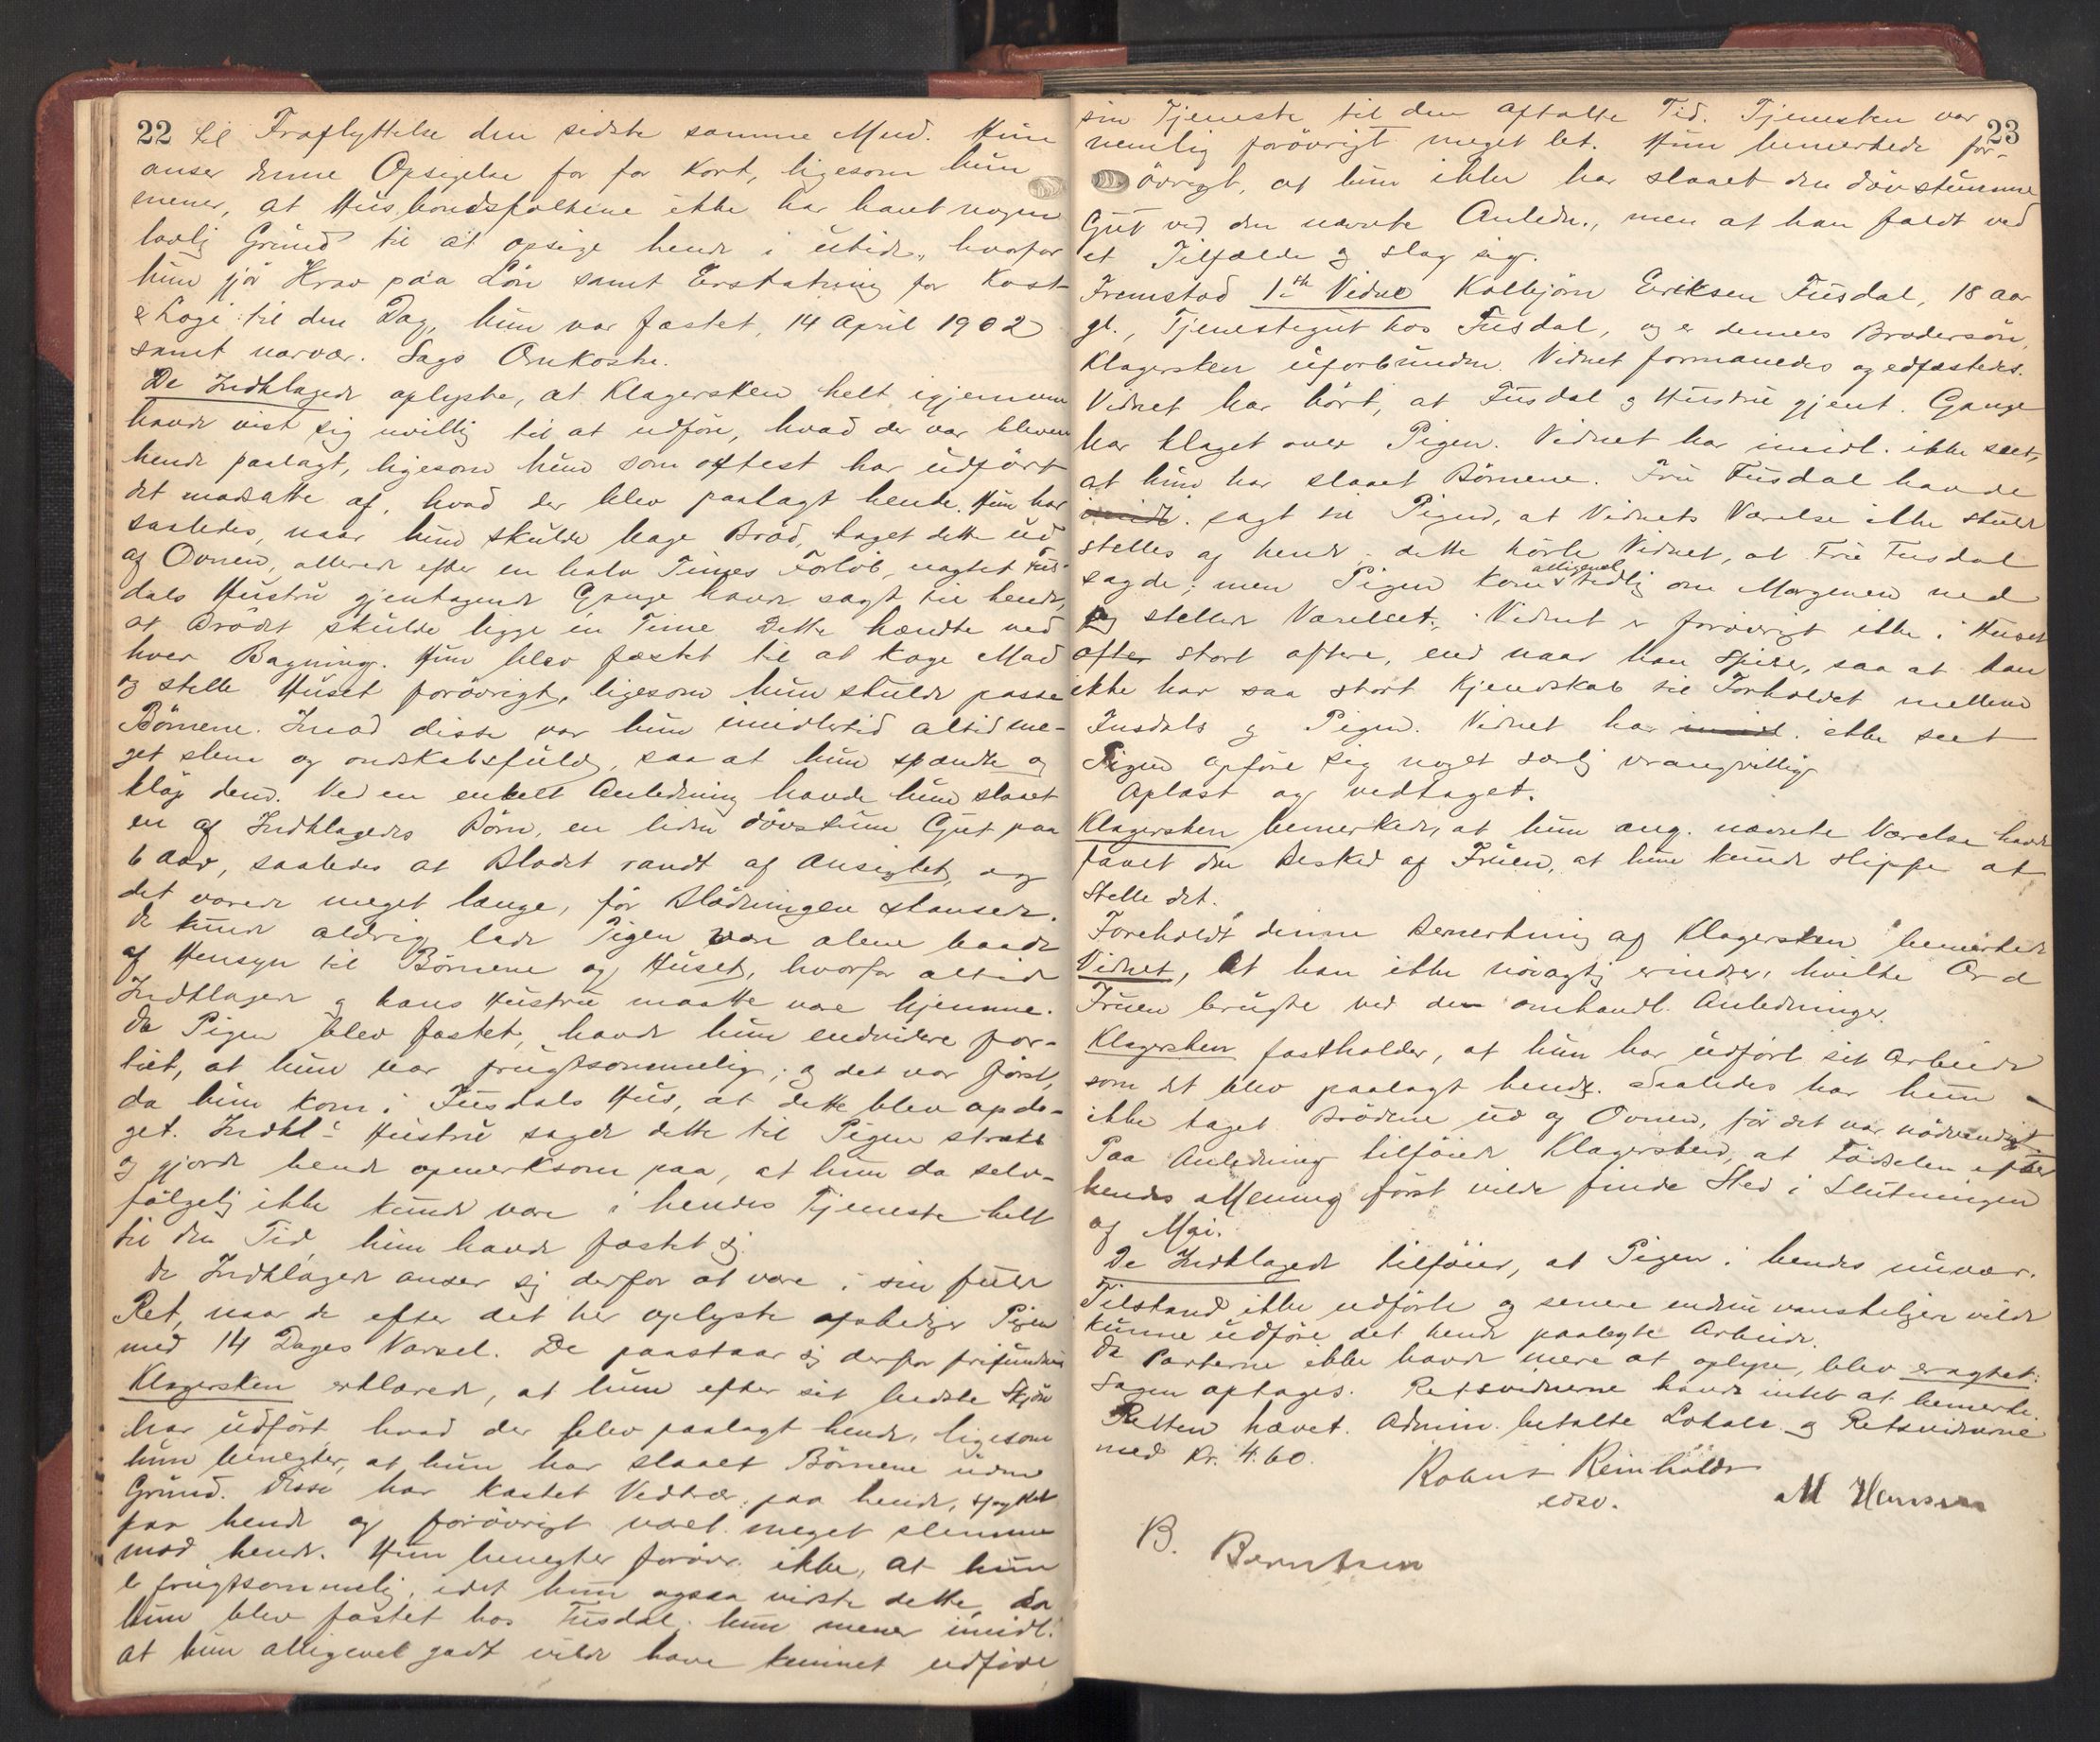 22 til Fraflyttelse den sidste samme Mnd. Hun
anser denne Opsigelse for for kort, ligesom hun
mener, at Husbondsfolkene ikke har havt nogen
lovlig Grund til at opsige hende i utide, hvorfor
hun gjør Krav paa Løn samt Erstatning for Kost
& Logi til den Dag, hun var fæstet, 14 April 1902
samt nærvær. Sags Omkostn.
De Indklagede oplyste, at Klagersken helt igjennem
havde vist sig uvillig til at udføre, hvad der var bleven
hende paalagt, ligesom hun som oftest har udført
det modsatte af, hvad der blev paalagt hende. Hun har
saaledes, naar hun skulde bage Brød, taget dette ud
af Ovnen, allerede efter en halv Times Forløb, uagtet Fus-
dals Hustru gjentagende Gange havde sagt til hende,
at Brødet skulde ligge en Time. Dette hændte ved
hver Bagning. Hun blev fæstet til at koge Mad
og stelle Huset forøvrigt, ligesom hun skulde passe
Børnene. Imod disse var hun imidlertid altid me-
get slem og ondskabsfuld, saa at hun spændte og
kløp dem. Ved en enkelt Anledning havde hun slaaet
en af Indklagedes Børn, en liden døvstum Gut paa
6 Aar, saaledes at Blodet randt af Ansigtet, og
det varede meget længe, før Blødningen stansede.
De kunde aldrig lade Pigen være alene baade
af Hensyn til Børnene og Huset, hvorfor altid
Indklagede og hans Hustru maatte være hjemme.
Da Pigen blev fæstet, havde hun endvidere for-
tiet, at hun var frugtsommelig; og det var først,
da hun kom i Fusdals Hus, at dette blev opda-
get. Indkl's Hustru sagde dette til Pigen straks
og gjorde hende opmerksom paa, at hun da selv-
følgelig ikke kunde være i hendes Tjeneste helt
til den Tid, hun havde fæstet sig.
De Indklagede anser sig derfor at være i sin fulde
Ret, naar de efter det her oplyste afskediger Pigen
med 14 Dages Varsel. De paastaar sig derfor frifundne
Klagersken erklærede, at hun efter sit bedste Skjøn
har udført hvad der blev paalagt hende, ligesom
hun benegter, at hun har slaaet Børnene uden
Grund. Disse har kastet Vedtrær paa hende, spyttet
paa hende og forøvrigt været meget slemme
mod hende. Hun benegter forøvr. ikke, at hun
er frugtsommelig, idet hun ogsaa vidste dette, da
hun blev fæstet hos Fusdal; hun mener imidl.
at hun alligevel godt vilde have kunnet udføre
23
sin Tjeneste til den aftalte Tid. Tjenesten var
nemlig forøvrigt meget let. Hun bemerkede for-
øvrigt, at hun ikke har slaaet den døvstumme
Gut ved den nævnte Anledn., men at han faldt ved
et Tilfælde og slog sig.
Fremstod 1ste Vidne Kolbjørn Eriksen Fusdal, 18 aar
gl., Tjenestegut hos Fusdal, og er dennes Brodersøn,
Klagersken uforbunden. Vidnet formanedes og edfæstedes.
Vidnet har hørt, at Fusdal og Hustru gjent. Gange
har klaget over Pigen. Vidnet har imidl. ikke seet,
at hun har slaaet Børnene. Fru Fusdal havde
imidl. sagt til Pigen, at Vidnets Værelse ikke skulde
stelles af hende - dette hørte Vidnet, at Fru Fusdal
sagde; men Pigen kom alligevel tidlig om Morgenen ned
og stellede Værelset. Vidnet er forøvrigt ikke i Huset
ofter stort oftere, end naar han spiser, saa at han
ikke har saa stort Kjendskab til Forholdet mellem
Fusdals og Pigen. Vidnet har imidl. ikke seet
Pigen opføre sig noget særlig vrangvillig.
Oplæst og vedtaget.
Klagersken bemerkede, at hun ang. nævnte Værelse havde
faaet den Besked af Fruen, at hun kunde slippe at
stelle det.
Foreholdt denne Bemerkning af Klagersken bemerkede
Vidnet, at han ikke nøiagtig erindrer, hvilke Ord
Fruen brugte ved den omhandl. Anledninger.
Klagersken fastholder, at hun har udført sit Arbeide
som det blev paalagt hende. Saaledes har hun
ikke taget Brødene ud af Ovnen, før det var nødvendigt.
Paa Anledning tilføiede Klagersken, at Fødselen efter
hendes Mening først vilde finde Sted i Slutningen
af Mai.
De Indklagede tilføier, at Pigen i hendes nuvær.
Tilstand ikke udførte og senere endnu vanskeligere vilde
kunne udføre det hende paalagte Arbeide.
Da Parterne ikke havde mere at oplyse, blev eragtet:
Sagen optages. Retsvidnerne havde intet at bemerke.
Retten hævet. Admin. betalte Lokale og Retsvidnerne
med Kr. 4.60.
Reinholdt
edsv.
M Hansen
B. Berntsen